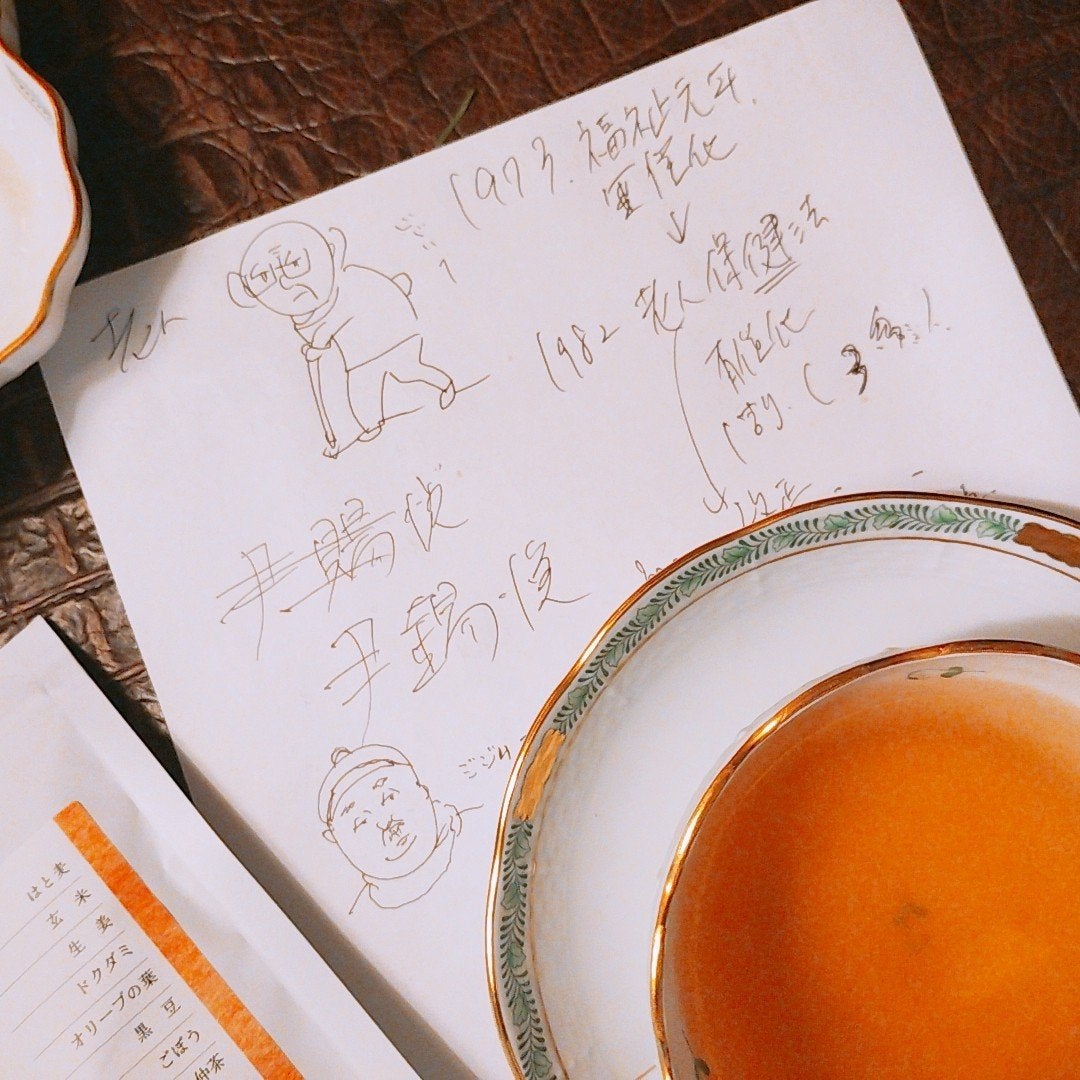 1973. 福祉元年.
無償化
↓
ジジー
1982 老人保健法
老人
有償化
1割. (3
改正
尹
尹錫俊
ジジム
はと麦
玄米
生姜
ドクダミ
オリーブの葉
黒豆
ごぼう
仲茶